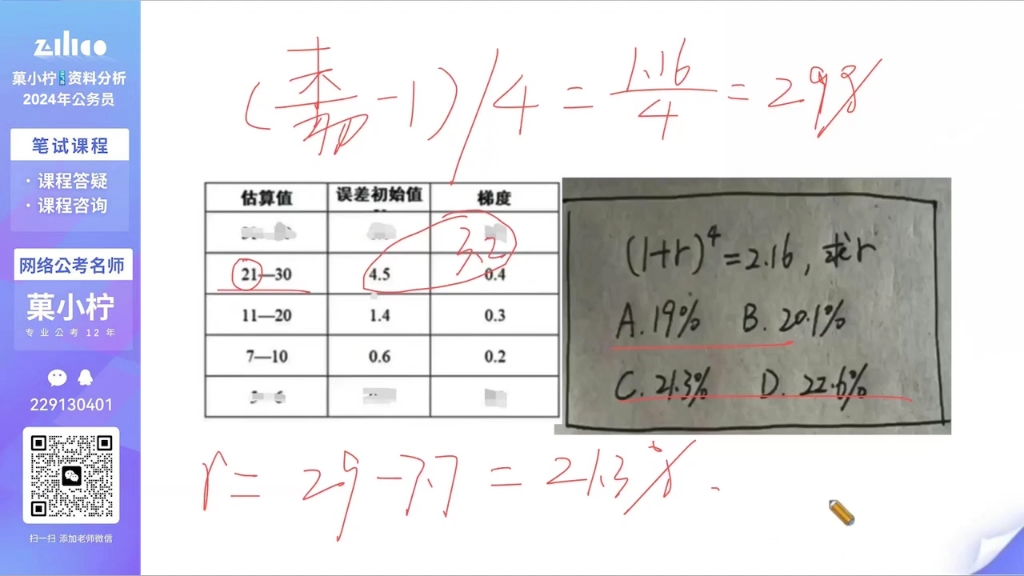 zılıco
菓小柠 资料分析
2024年公务员
笔试课程
· 课程答疑
· 课程咨询
网络公考名师
菓小柠
专业公考12年
229130401
扫一扫 添加老师微信
(末/初 -1)/4 = 1.16/4 = 29%
估算值 误差初始值 梯度
3.2
21—30 4.5 0.4
11—20 1.4 0.3
7—10 0.6 0.2
(1+r)⁴=2.16, 求r
A.19% B.20.1%
C.21.3% D.22.6%
r = 29-7.7 = 21.3%.